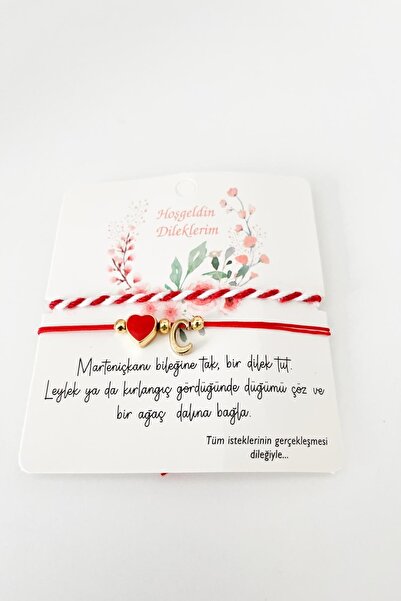 Hoşgeldin
Dileklerim
C
Marteniçkanı bileğine tak, bir dilek tut.
Leylek ya da kırlangıç gördüğünde düğümü çöz ve
bir ağaç dalına bağla.
Tüm isteklerinin gerçekleşmesi
dileğiyle...